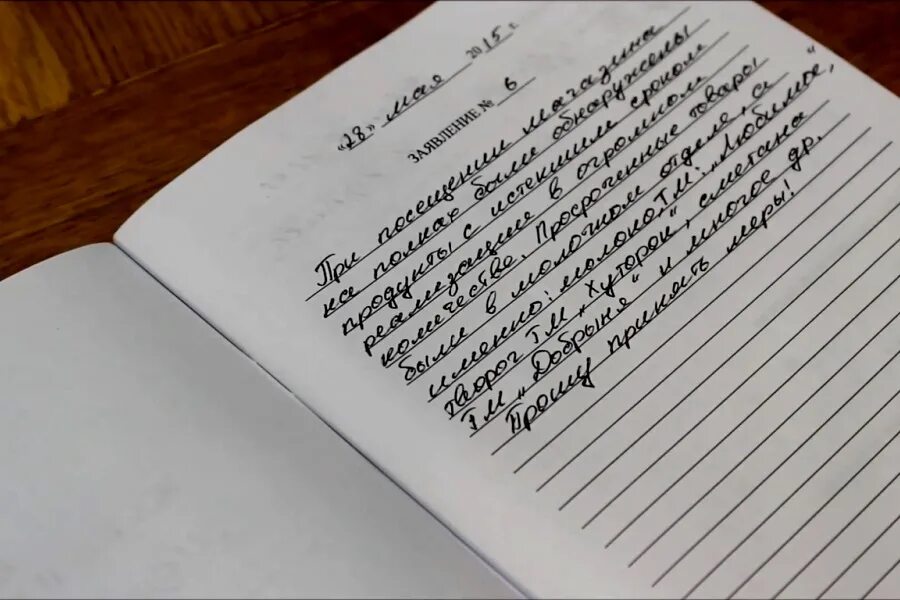 "28" мая 2015 г.
ЗАЯВЛЕНИЕ № 6
При посещении магазина
на полках были обнаружены
продукты с истекшим сроком
реализации в огромном
количестве. Просроченные товары
были в молочном отделе, а
именно: молоко ТМ: „Любимое",
творог ТМ „Хуторок", сметана
ТМ „Добрыня" и многое др.
Прошу принять меры!